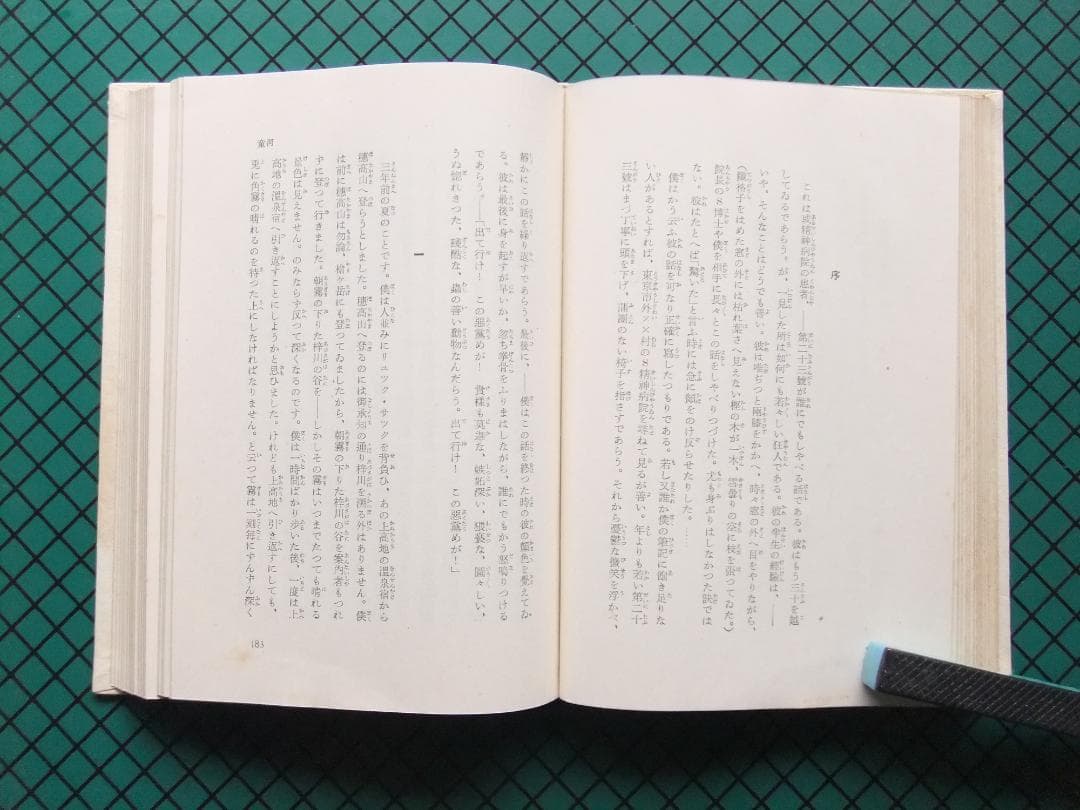 序
これは或精神病院の患者、――第二十三號が誰にでもしやべる話である。彼はもう三十を越
してゐるであらう。が、一見した所は如何にも若々しい狂人である。彼の半生の經驗は、――
いや、そんなことはどうでも善い。彼は唯ぢつと兩膝をかかへ、時々窓の外へ目をやりながら、
(鐵格子をはめた窓の外には枯れ葉さへ見えない樫の木が一本、雪曇りの空に枝を張つてゐた。)
院長のS博士や僕を相手に長々とこの話をしやべりつづけた。尤も身ぶりはしなかつた訣では
ない。彼はたとへば「驚いた」と言ふ時には急に顏をのけ反らせたりした。……
僕はかう云ふ彼の話を可なり正確に寫したつもりである。若し又誰か僕の筆記に飽き足りな
い人があるとすれば、東京市外××村のS精神病院を尋ねて見るが善い。年よりも若い第二十
三號はまづ丁寧に頭を下げ、蒲團のない椅子を指さすであらう。それから憂鬱な微笑を浮かべ、
靜かにこの話を繰り返すであらう。最後に、――僕はこの話を終つた時の彼の顏色を覺えてゐ
る。彼は最後に身を起すが早いか、忽ち拳骨をふりまはしながら、誰にでもかう怒鳴りつける
であらう。――「出て行け! この惡黨めが! 貴樣も莫迦な、嫉妬深い、猥褻な、圖々しい、
うぬ惚れきつた、殘酷な、蟲の善い動物なんだらう。出て行け! この惡黨めが!」
一
三年前の夏のことです。僕は人並みにリュック・サックを背負ひ、あの上高地の溫泉宿から
穗高山へ登らうとしました。穗高山へ登るのには御承知の通り梓川を溯る外はありません。僕
は前に穗高山は勿論、槍ヶ岳にも登つてゐましたから、朝霧の下りた梓川の谷を案內者もつれ
ずに登つて行きました。朝霧の下りた梓川の谷を――しかしその霧はいつまでたつても晴れる
景色は見えません。のみならず反つて深くなるのです。僕は一時間ばかり步いた後、一度は上
高地の溫泉宿へ引き返すことにしようかと思ひました。けれども上高地へ引き返すにしても、
兎に角霧の晴れるのを待つた上にしなければなりません。と云つて霧は一刻每にずんずん深く
童河
183